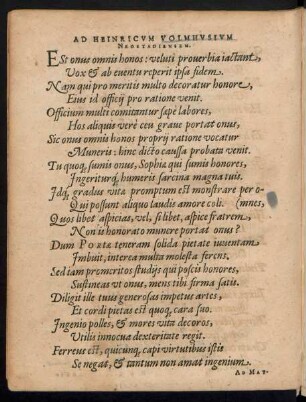 AD HEINRICVM VOLMHVSIVM
NEOSTADIENSEM.
EST onus omnis honos: veluti prouerbia iactant,
Vox & ab euentu reperit ipsa fidem.
Nam qui pro meritis multo decoratur honore,
Eius id officij pro ratione venit.
Officium multi comitantur sæpè labores,
Hos aliquis verè ceu graue portat onus,
Sic onus omnis honos proprij ratione vocatur
Muneris: hinc dicto caussa probata venit.
Tu quoq, sumis onus, Sophiæ qui sumis honores,
Ingeriturq, humeris sarcina magna tuis.
Idq, gradus vitæ promptum est monstrare per o-
Qui possunt aliquo laudis amore coli. (mnes,
Quos libet aspicias, vel, si libet, aspice fratrem,
Non is honorato munere portat onus?
Dum POETÆ teneram solida pietate iuuentam
Imbuit, interea multa molesta ferens.
Sed iam præmeritos studijs quòd poscis honores,
Sustineas vt onus, mens tibi firma satis.
Diligit ille tuus generosas impetus artes,
Et cordi pietas est quoq, cara suo.
Ingenio polles, & mores vita decoros,
Vtilis innocua dexteritate regit.
Ferreus est, quicunq, capi virtutibus istis
Se negat, & tantum non amat ingenium.
AD MAT-